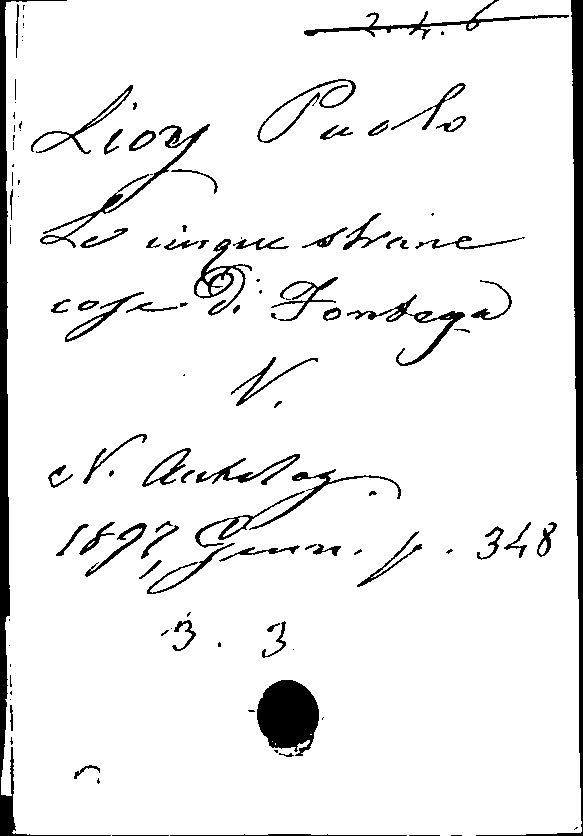 2.4.6
Lioy Paolo
Le cinque strane
case di Fontega
N.
N. Antolog.
1897, Genn. p. 348
3. 3